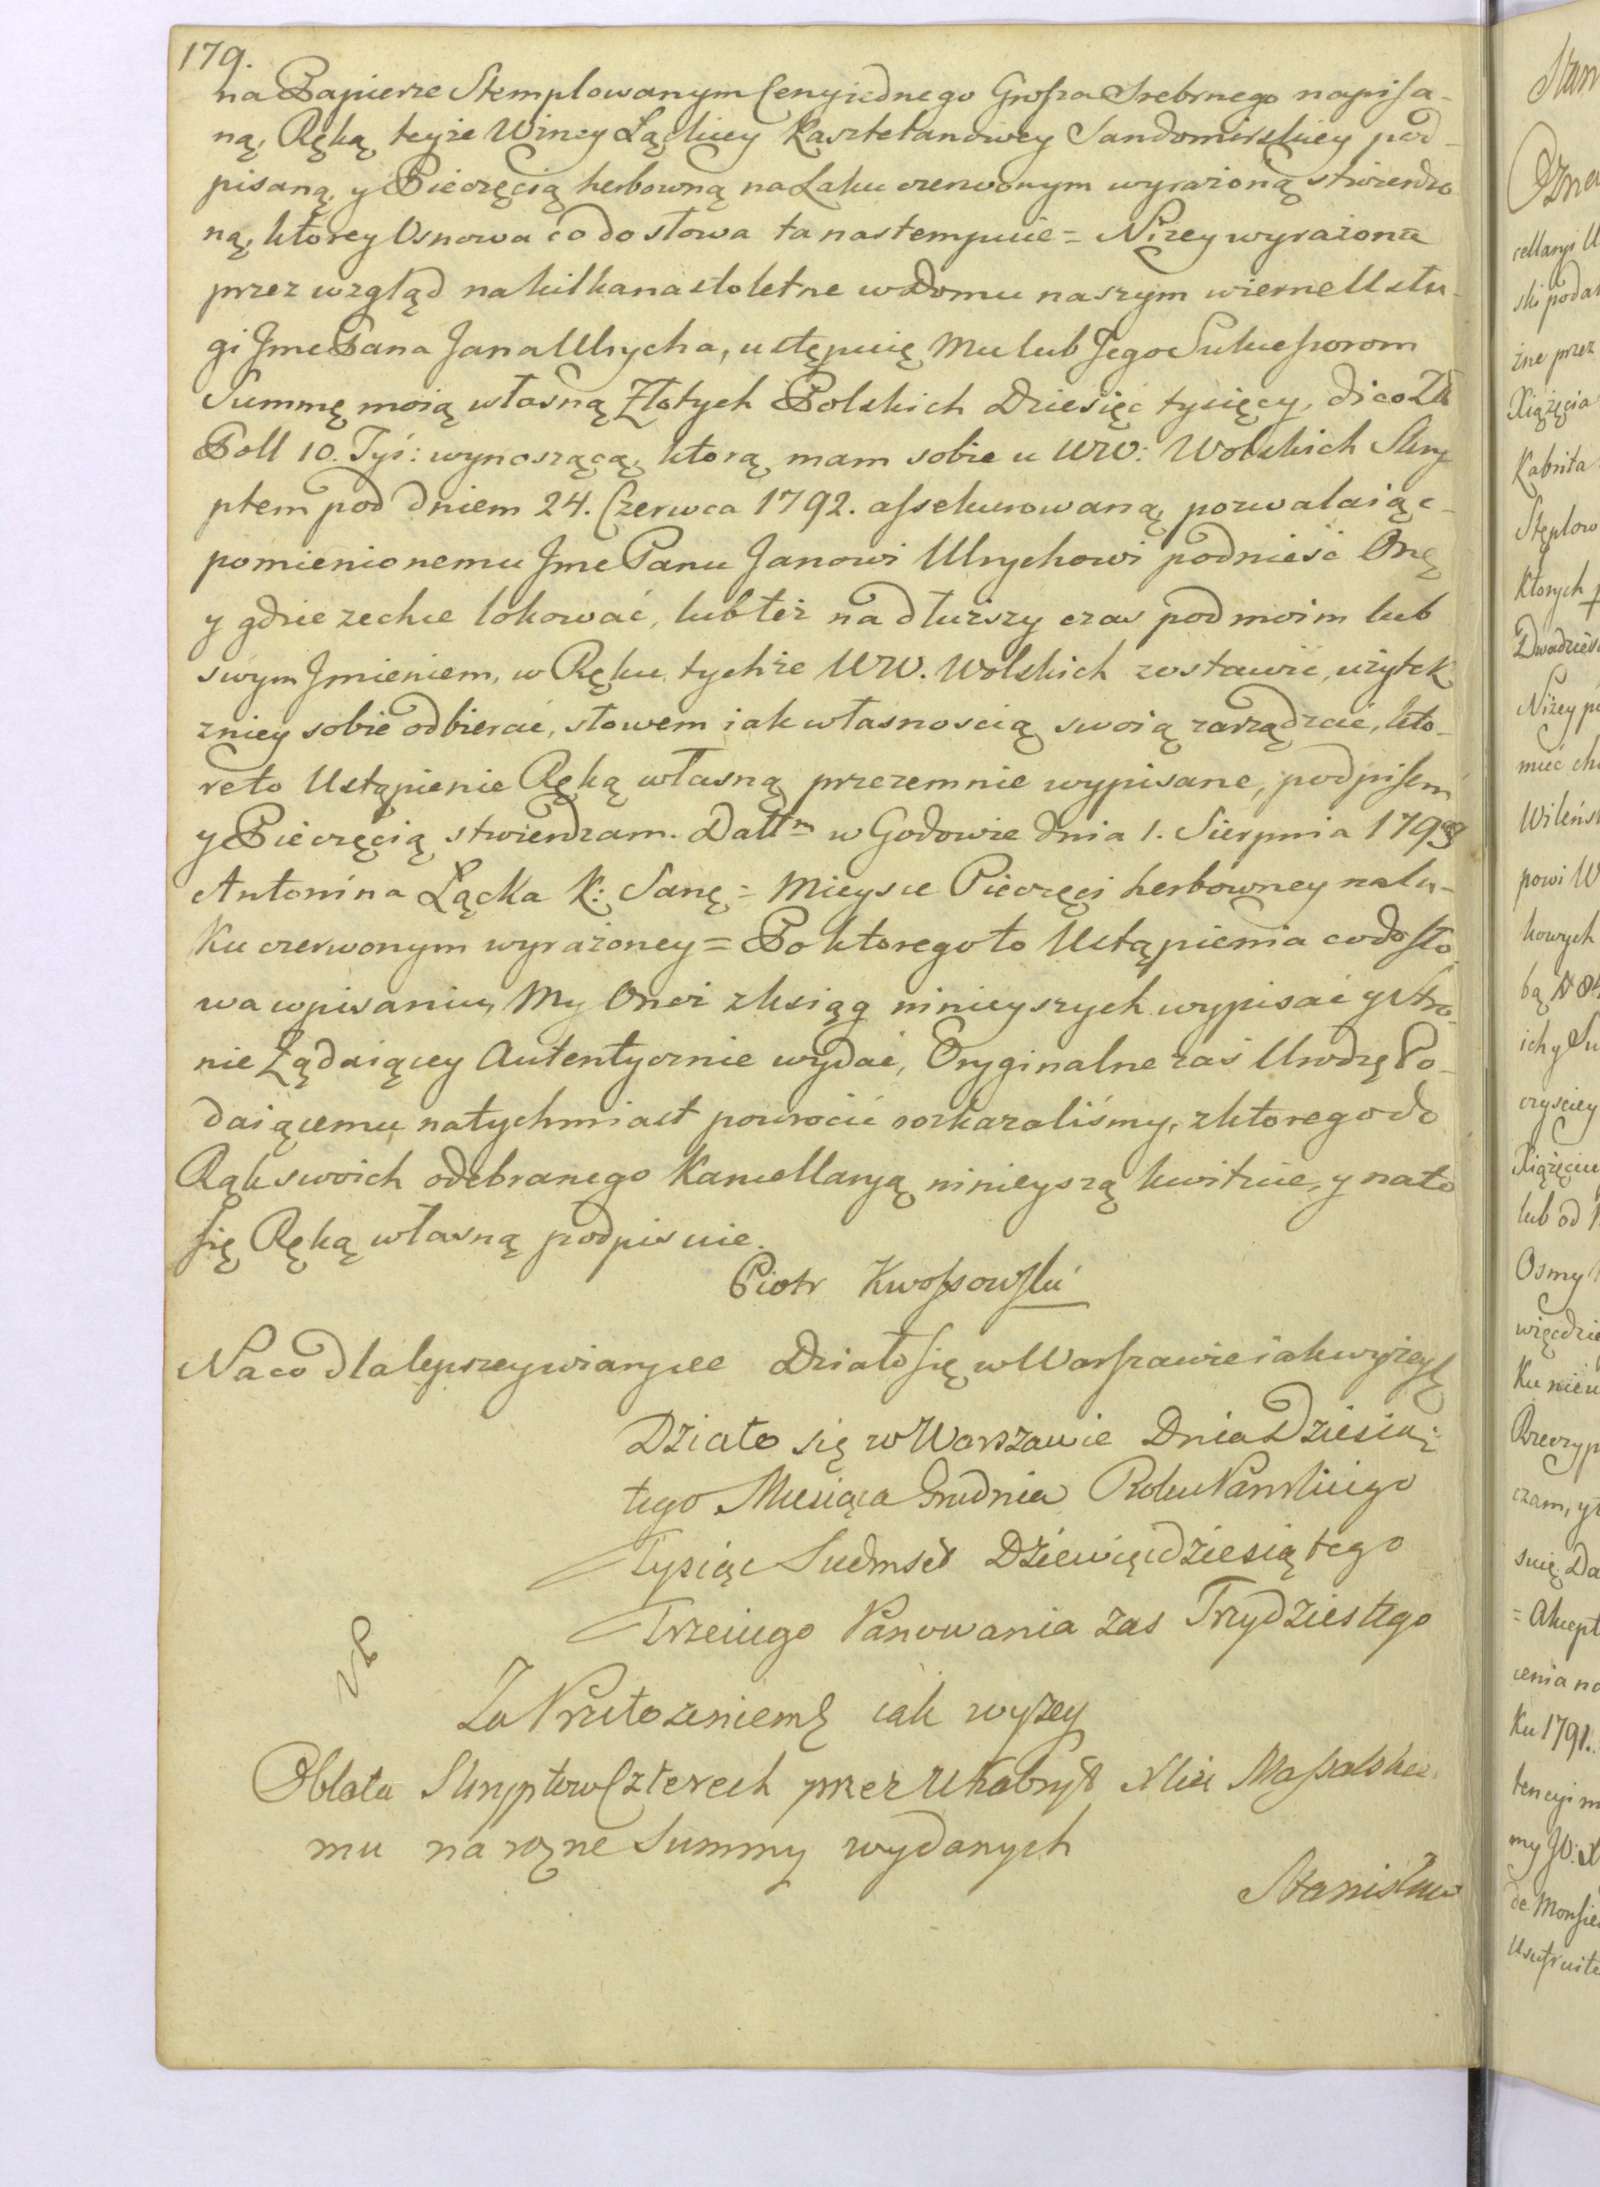 179.
na Papierze Stemplowanym Ceny iednego Grosza Srebrnego napisa-
ną, Ręką teyże Wżney Łąckiey Kasztelanowey Sandomirskiey pod-
pisaną, y Pieczęcią herbowną na Laku czerwonym wyrażoną stwierdzo
ną, ktorey Osnowa co do słowa ta nastempuie = Niżey wyrażona
przez wzgląd na kilkanastoletne w Domu naszym wierne Usłu-
gi Jmc Pana Jana Ulrycha, ustępuię Mu lub Jego Sukcessorom
Summę moią własną Złotych Polskich Dziesięc tysięcy, dico Zł
Poll 10. Tyś: wynoszącą, ktorą mam sobie u WW: Wolskich Skry
ptem pod dniem 24. Czerwca 1792. assekurowaną, pozwalaiąc-
pomienionemu Jmc Panu Janowi Ulrychowi podnieść Onę
y gdzie zechce lokować, lub też na dłuższy czas pod moim lub
swym Jmieniem, w Ręku tychże WW. Wolskich zostawić, użytek
zniey sobie odbierać, słowem iak własnością swoią zarządzać, kto-
reto Ustąpienie Ręką własną przezemnie wypisane, podpisem
y Pieczęcią stwierdzam. Datt m w Godowie dnia 1. Sierpnia 1793
Antonina Łącka K: Sanę = Mieysce Pieczęci herbowney na la-
ku czerwonym wyrażoney = Po ktorego to Ustąpienia co do sło
wa wpisaniu, My Oneż z ksiąg ninieyszych wypisać y Stro-
nie Żądaiącey Autentycznie wydać, Oryginalne zaś Urodzę Po-
daiącemu natychmiast powrocić rozkazaliśmy, z ktorego do
Rąk swoich odebranego Kancellaryą ninieyszą kwituie, y na to
się Ręką własną podpisuie.
Piotr Kwossowski
Na co dla lepszey wiary ect Działo się w Warszawie iak wyżey
Działo się w Warszawie Dnia Dziesią:
tego Miesiąca Grudnia Roku Panskiego
Tysiąc Siedmset Dziewięcdziesiątego
Trzeciego Panowania zas Trzydziestego
Za Przełożeniem iak wyżey
Oblata Skryptow Czterech przez U Kabryt Xciu Massalskie
mu na rożne Summy wydanych
Stanisław